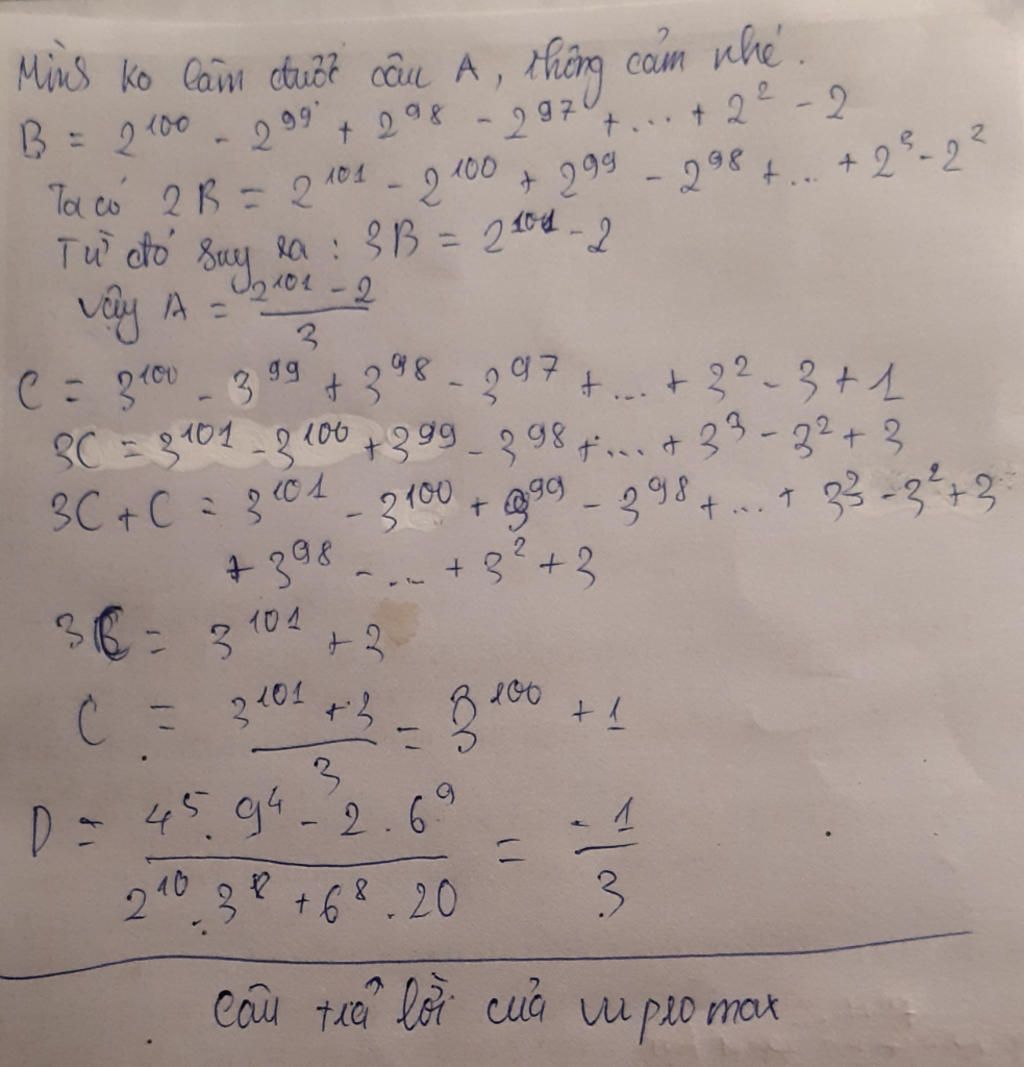 Mình ko làm được câu A, thông cảm nhé.
B = 2^100 - 2^99 + 2^98 - 2^97 + ... + 2^2 - 2
Ta có 2B = 2^101 - 2^100 + 2^99 - 2^98 + ... + 2^3 - 2^2
Từ đó suy ra : 3B = 2^101 - 2
Vậy A = (2^101 - 2)/3
C = 3^100 - 3^99 + 3^98 - 3^97 + ... + 3^2 - 3 + 1
3C = 3^101 - 3^100 + 3^99 - 3^98 + ... + 3^3 - 3^2 + 3
3C + C = 3^101 - 3^100 + 3^99 - 3^98 + ... + 3^3 - 3^2 + 3
+ 3^98 - ... + 3^2 + 3
3C = 3^101 + 3
C = (3^101 + 3)/3 = 3^100 + 1
D = (4^5 . 9^4 - 2 . 6^9)/(2^10 . 3^8 + 6^8 . 20) = -1/3
Câu trả lời của vupromax